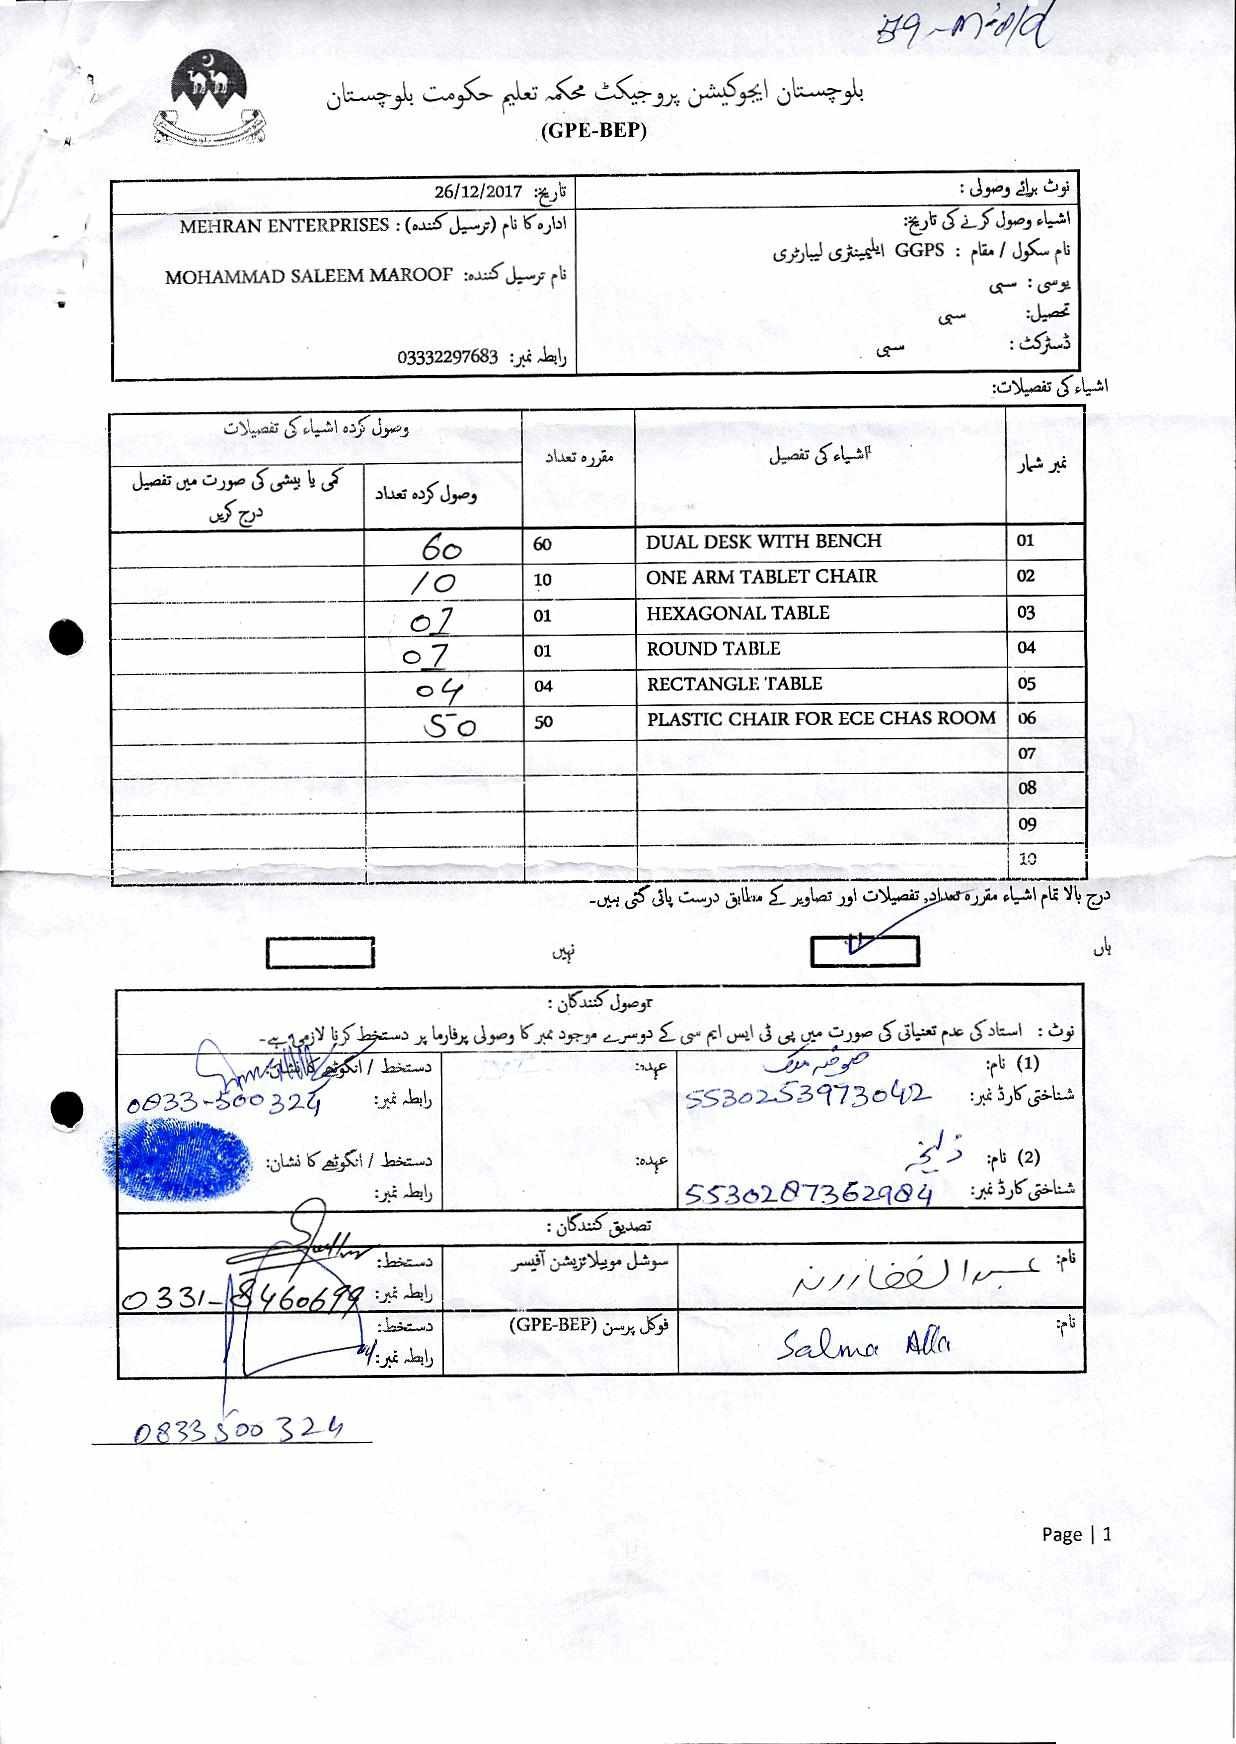 بلوچستان ایجوکیشن پروجیکٹ محکمہ تعلیم حکومت بلوچستان
(GPE-BEP)
نوٹ برائے وصولی :
تاریخ: 26/12/2017
اشیاء وصول کرنے کی تاریخ:
نام سکول / مقام : GGPS ایلیمینٹری لیبارٹری
یو سی : سبی
تحصیل: سبی
ڈسٹرکٹ : سبی
ادارہ کا نام (ترسیل کنندہ) : MEHRAN ENTERPRISES
نام ترسیل کنندہ: MOHAMMAD SALEEM MAROOF
رابطہ نمبر: 03332297683
اشیاء کی تفصیلات:
نمبر شمار اشیاء کی تفصیل مقررہ تعداد وصول کردہ اشیاء کی تفصیلات
وصول کردہ تعداد کمی یا بیشی کی صورت میں تفصیل درج کریں
01 DUAL DESK WITH BENCH 60 60
02 ONE ARM TABLET CHAIR 10 10
03 HEXAGONAL TABLE 01 01
04 ROUND TABLE 01 01
05 RECTANGLE TABLE 04 04
06 PLASTIC CHAIR FOR ECE CHAS ROOM 50 50
07
08
09
10
درج بالا تمام اشیاء مقررہ تعداد, تفصیلات اور تصاویر کے مطابق درست پائی گئی ہیں۔
ہاں نہیں
وصول کنندگان :
نوٹ : استاد کی عدم تعیناتی کی صورت میں پی ٹی ایس ایم سی کے دوسرے موجود ممبر کا وصولی پرفارما پر دستخط کرنا لازمی ہے۔
(1) نام: عہدہ: دستخط / انگوٹھے کا نشان:
شناختی کارڈ نمبر: 5530253973042 رابطہ نمبر: 0833-500324
(2) نام: عہدہ: دستخط / انگوٹھے کا نشان:
شناختی کارڈ نمبر: 5530287362984 رابطہ نمبر:
تصدیق کنندگان :
نام: عبدالغفار رند سوشل موبیلائزیشن آفیسر دستخط:
رابطہ نمبر: 0331-8460699
نام: Salma فوکل پرسن (GPE-BEP) دستخط:
رابطہ نمبر:
0833500324
Page | 1